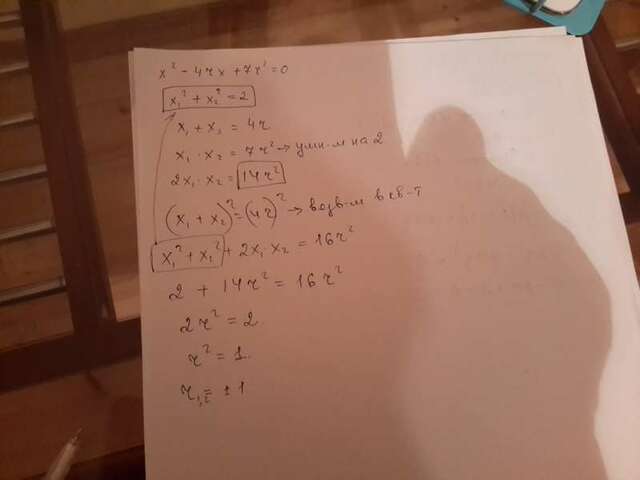 x² - 4rx + 7r² = 0
x₁² + x₂² = 2
x₁ + x₂ = 4r
x₁ · x₂ = 7r² → умн-м на 2
2x₁ · x₂ = 14r²
(x₁ + x₂)² = (4r)² → возв-м в кв-т
x₁² + x₂² + 2x₁ x₂ = 16r²
2 + 14r² = 16r²
2r² = 2
r² = 1.
r₁,₂ = ±1